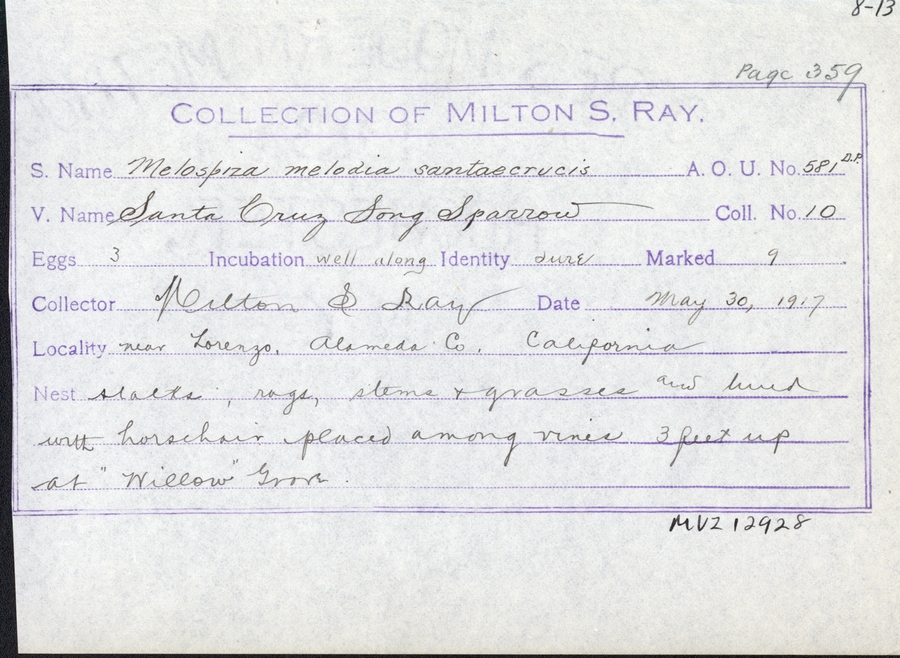 8-13
Page 359
COLLECTION OF MILTON S. RAY.
S. Name Melospiza melodia santaecrucis A. O. U. No. 581 D.P.
V. Name Santa Cruz Song Sparrow Coll. No. 10
Eggs 3 Incubation well along Identity sure Marked 9
Collector Milton S Ray Date May 30, 1917
Locality near Lorenzo, Alameda Co. California
Nest stalks, rags, stems + grasses and lined
with horsehair placed among vines 3 feet up
at "Willow" Grove.
MVZ 12928